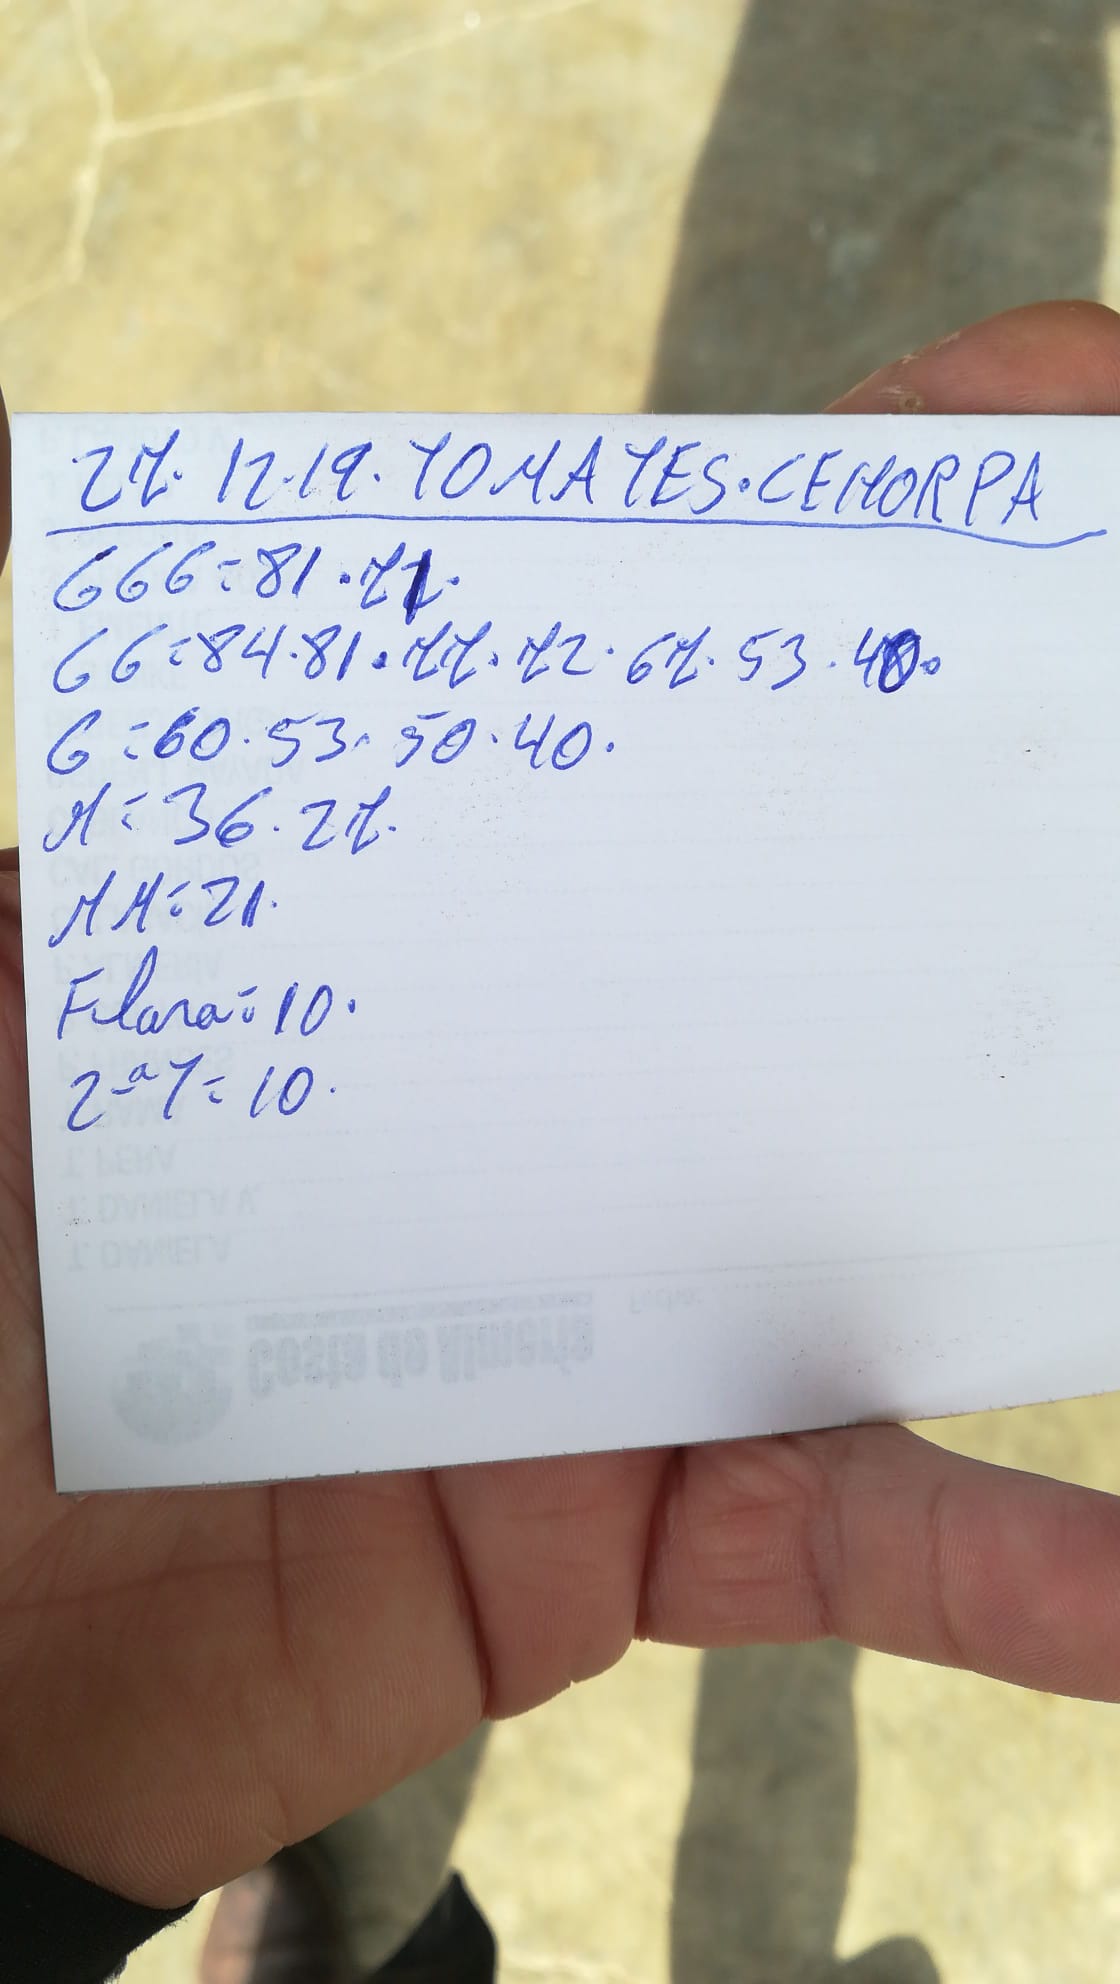 27. 12.19. TOMATES. CEHORPA
GGG = 81 . 71.
GG = 84.81.77.72.67.53.40.
G = 60.53.50.40.
M = 36.27.
MM = 21.
F. lara = 10.
2ª T = 10.
T. PERA
T. DANIELA V.
T. DANIELA
Fecha:
Costa de Almería